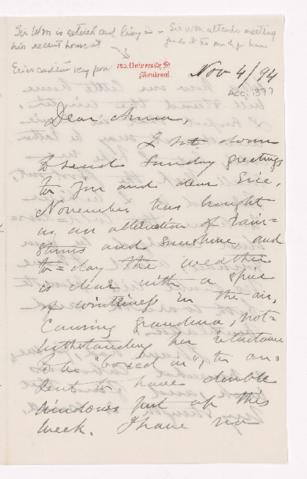 Sir Wm is retired and living in - Sir Wm attends meeting
his recent house at
Eric's condition very poor
152 University St
Montreal.
Nov 4/94
Dear Anna,
I sit down
to send Sunday greetings
to you and dear Sice,
November has brought
us an alteration of rain-
storms and sunshine and
to-day the weather
is clear with a spice
of wintriness in the air,
causing grandma, not-
withstanding her reluctance
to be "boxed in", to con-
sent to have double
windows put up this
week. I have no